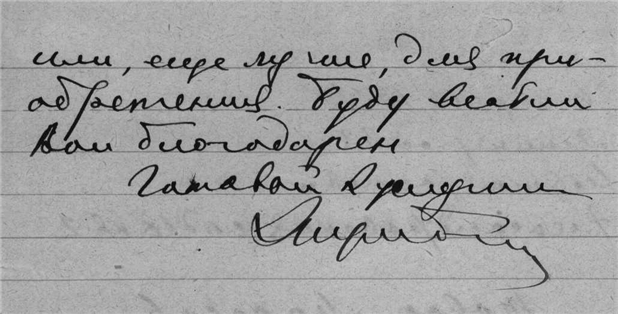 или, еще лучше, для при-
обретения. Буду весьма
Вам благодарен
Готовый к услугам